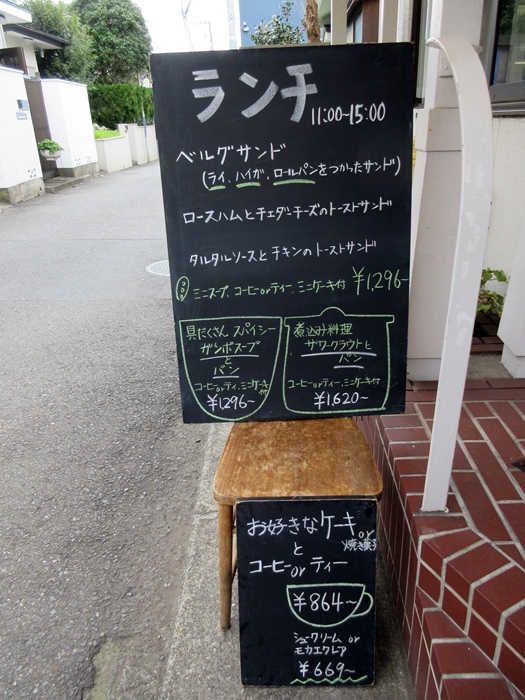 ランチ 11:00~15:00
ベルグサンド
(ライ、ハイガ、ロールパンをつかったサンド)
ロースハムとチェダーチーズのトーストサンド
タルタルソースとチキンのトーストサンド
ミニスープ、コーヒーorティー、ミニケーキ付 ¥1,296~
具だくさん スパイシー
ガンボスープ
と
パン
コーヒーorティ、ミニケーキ付
¥1296~
煮込み料理
ザワークラウトと
パン
コーヒーorティー、ミニケーキ付
¥1,620~
お好きなケーキor
焼き菓子
と
コーヒーorティー
¥864~
シュークリーム or
モカエクレア
¥669~